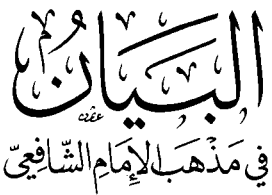 البيان
في مَذْهَبِ الإمَامِ الشَّافِعِيِّ